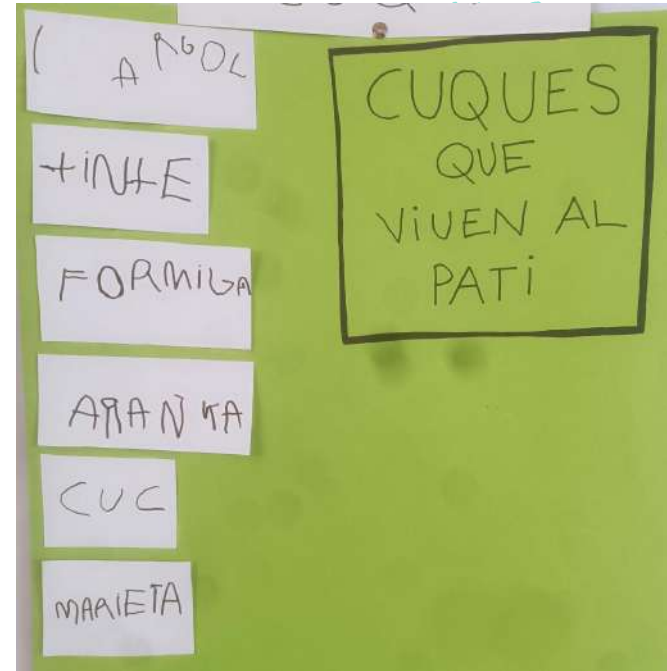 CARGOL
tiNtE
FORMIGA
CUC
MARIETA
CUQUES
QUE
ViUEN AL
PATi